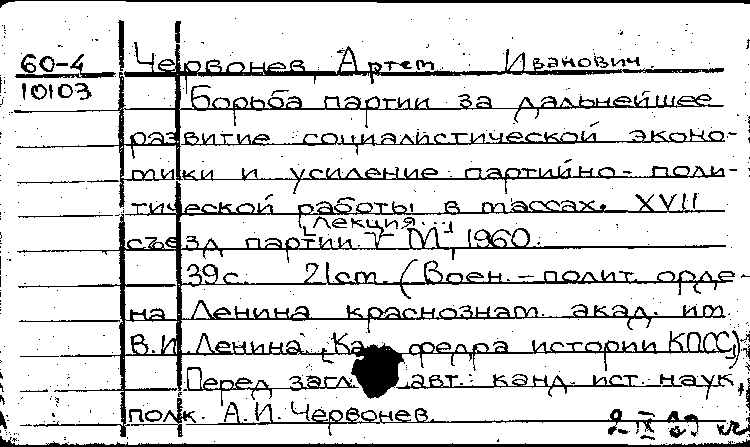 60-4 Червонев, Артем Иванович.
10103
Борьба партии за дальнейшее
развитие социалистической эконо-
мики и усиление партийно-поли-
тической работы в массах. XVII
съезд партии. [Лекция.] М., 1960.
39с. 21см. (Воен.-полит. орде-
на Ленина краснознам. акад. им.
В.И. Ленина. Кафедра истории КПСС).
Перед загл. авт.: канд. ист. наук,
полк. А.И. Червонев.
2 IX